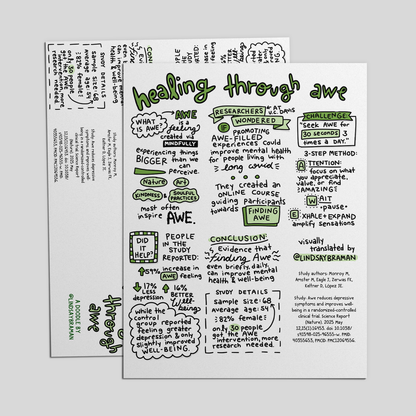 healing through awe
WHAT
IS AWE?
AWE is a
feeling
created via
MINDFULLY
experiencing things
BIGGER than we
can
perceive.
Nature Art
KINDNESS SOULFUL
PRACTICES
most often
inspire AWE.
RESEARCHERS AT
U.C. DAVIS
WONDERED
IF PROMOTING
AWE-FILLED
EXPERIENCES could
improve mental health
for people living with
long covid
They created an
ONLINE COURSE
guiding participants
towards FINDING
AWE
CHALLENGE:
"SEEK AWE FOR
30 seconds, 3
times a DAY."
3-STEP METHOD:
ATTENTION:
focus on what
you appreciate,
value, or find
AMAZING!
WAIT
-pause-
EXHALE + EXPAND
amplify sensations
DID
IT
HELP?
PEOPLE
IN THE
STUDY
REPORTED:
59% increase in
AWE feeling
17%
Less
depression
16%
BETTER
Well-
Being.
While the
control
group reported
feeling greater
depression & only
slightly improved
WELL-BEING.
CONCLUSION:
Evidence that
finding Awe
even briefly, daily,
can improve mental
health & well-being
STUDY DETAILS
Sample size: 68
average age: 54
82% female
only 30 people
got the AWE
intervention, more
research needed.
visually
translated by
@LINDSAYBRAMAN
Study authors: Monroy M,
Amster M, Eagle J, Zerwas FK,
Keltner D, López JE.
Study: Awe reduces depressive
symptoms and improves well-
being in a randomized-controlled
clinical trial. Science Report
(Nature). 2025 May
A DOODLE BY
@LINDSAYBRAMAN